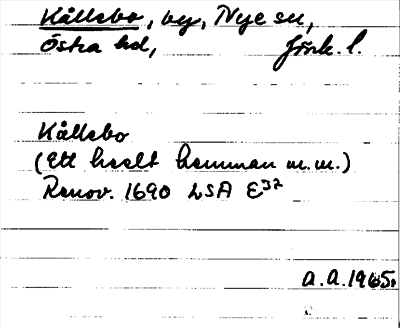 Källebo, by, Nye sn,
Östra hd, Jönk. l.
Källebo
(Ett heelt hemman m.m.)
Renov. 1690 LSA E32
A.A. 1965.